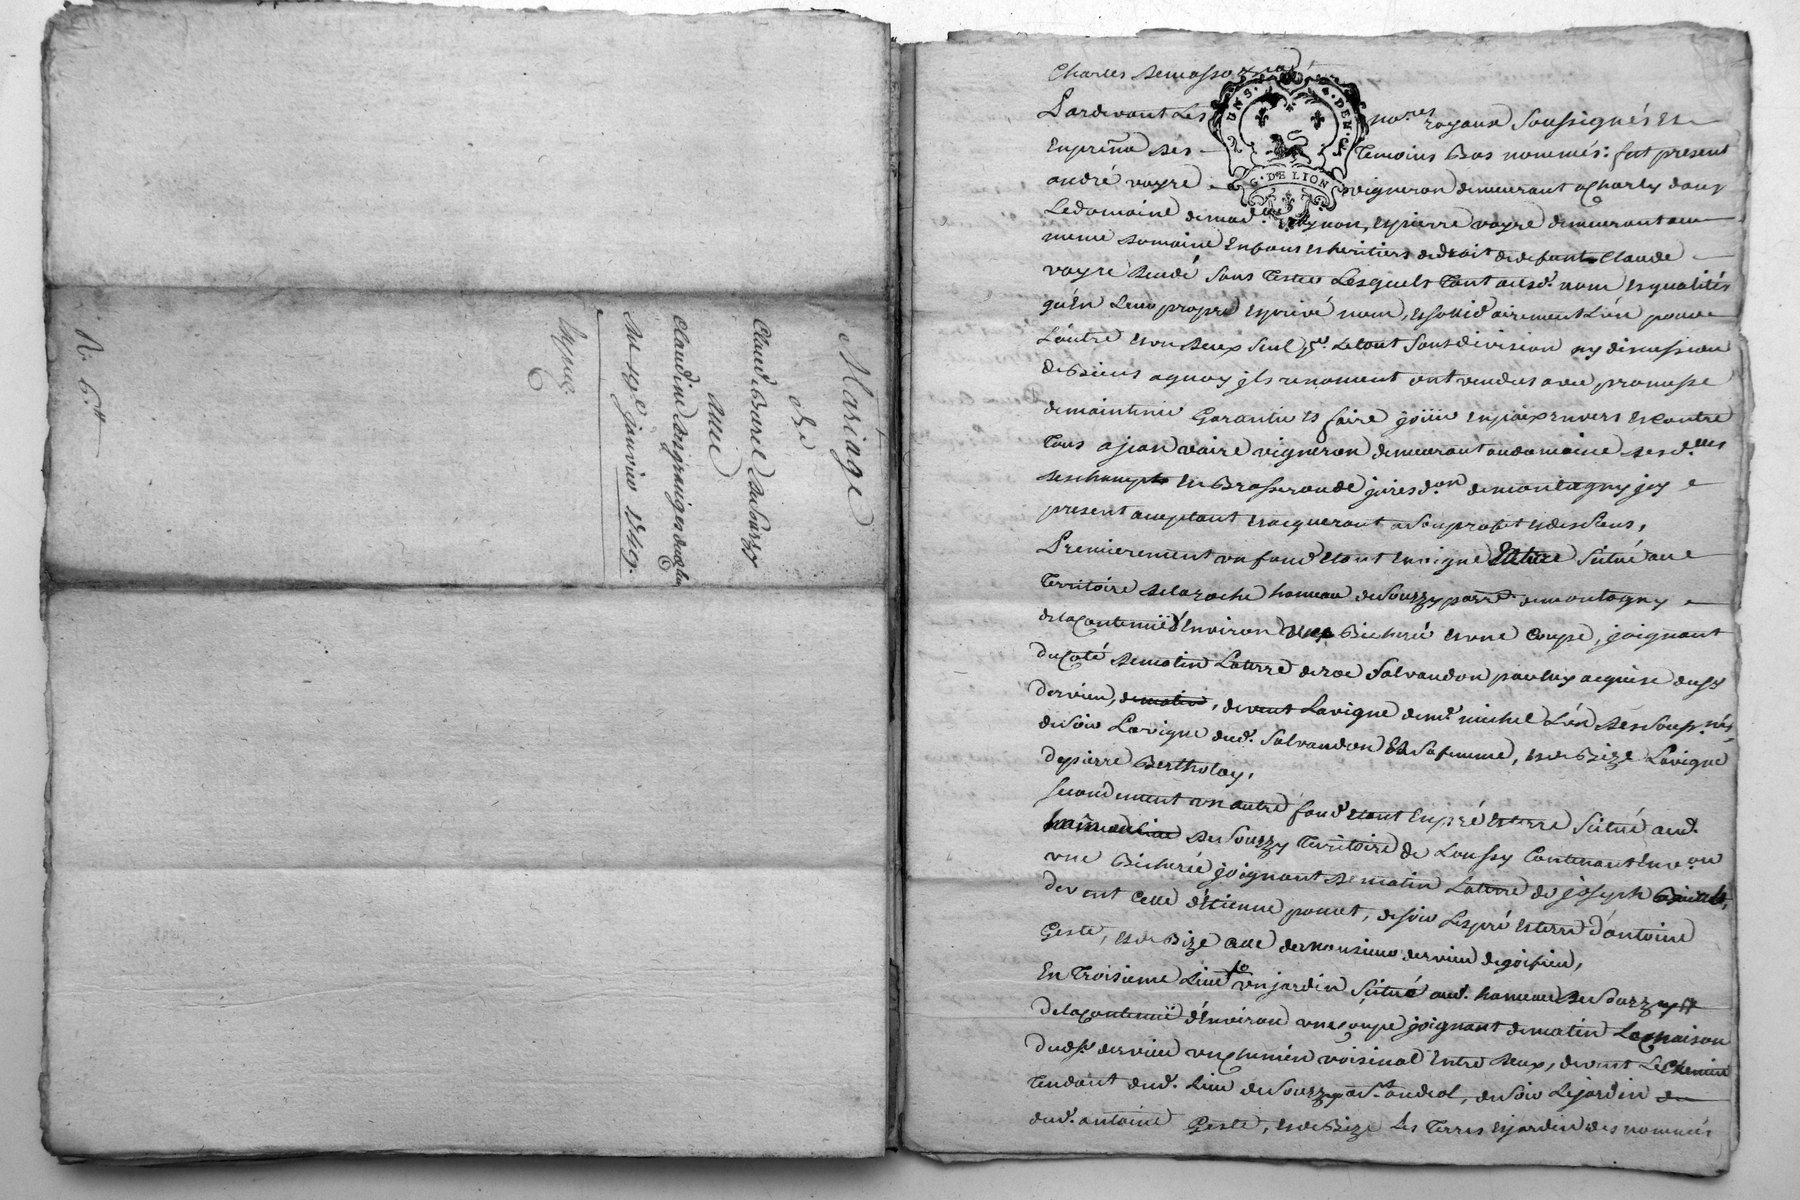 Mariage
de
Claude Burel du Souzy
avec
Claudine
du 19e janvier 1749.
N. 6.tt
Charles
DEUX S. DEN.
G. DE LION
Pardevant les no.res royaux soussignés et
en presence des temoins bas nommés: fut present
andré voyre vigneron demeurant a Charly dans
Le domaine de mad.lle et pierre voyre demeurant au
meme domaine enfans et heritiers de droit de defunt Claude
voyre decedé sans tester Lesquels tant aud. nom et qualités
qu'en leur propre et privé nom, et solidairement L'un pour
L'autre et un deux seul p.r Le tout sans division ny discussion
de biens a quoy ils renoncent ont vendus avec promesse
de maintenir Garantir et faire joüir en paix envers et contre
tous a jean voire vigneron demeurant au domaine des d.lles
deschamps en Brosseronde jurisd.on de montagny icy
present acceptant et acquerant a son profit et des siens,
Premierement un fond etant en vigne et terre scitué au
territoire de la roche hameau du Souzy parr. de montagny
de la contenüe d'environ une Bicherée et une Coupe, joignant
du Coté de matin La terre de roc Salvandon par luy acquise du sr
dervieu, de matin, de vent La vigne de m.e michel L'un des souss.nés
de soir La vigne dud. Salvandon Et sa femme, et de Bize La vigne
de pierre Bertholay,
secondement un autre fond etant en pré et terre scitué aud.
hameau du Souzy territoire de Loussy Contenant env.on
une Bicherée joignant de matin La terre de joseph
de vent Celle d'étienne poncet, de soir Les pré et terre d'antoine
Geste, et de Bize Celle de monsieur dervieu de goifieu,
En troisieme Lieu un jardin scitué aud. hameau du Souzy
de la contenüe d'environ une Coupe joignant de matin La maison
dud. sr dervieu un chemin voisinal entre deux, de vent Le Chemin
tendant dud. Lieu du Souzy a St. andeol, de soir Le jardin
dud. antoine Geste, et de Bize Les terres et jardin des nommés